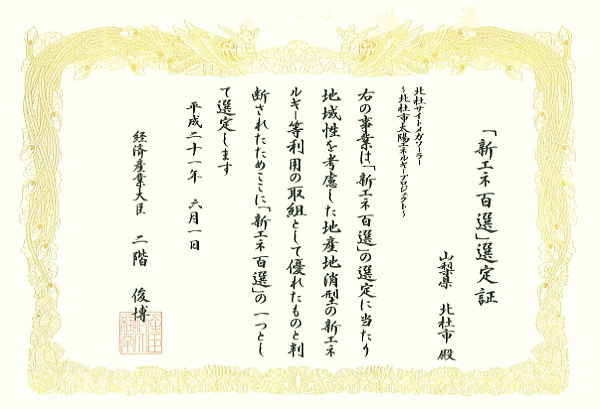 「新エネ百選」選定証
山梨県 北杜市 殿
北杜サイトメガソーラー
～北杜市太陽エネルギープロジェクト～
右の事業は「新エネ百選」の選定に当たり
地域性を考慮した地産地消型の新エネ
ルギー等利用の取組として優れたものと判
断されたためここに「新エネ百選」の一つとし
て選定します
平成二十一年 六月一日
経済産業大臣 二階 俊博